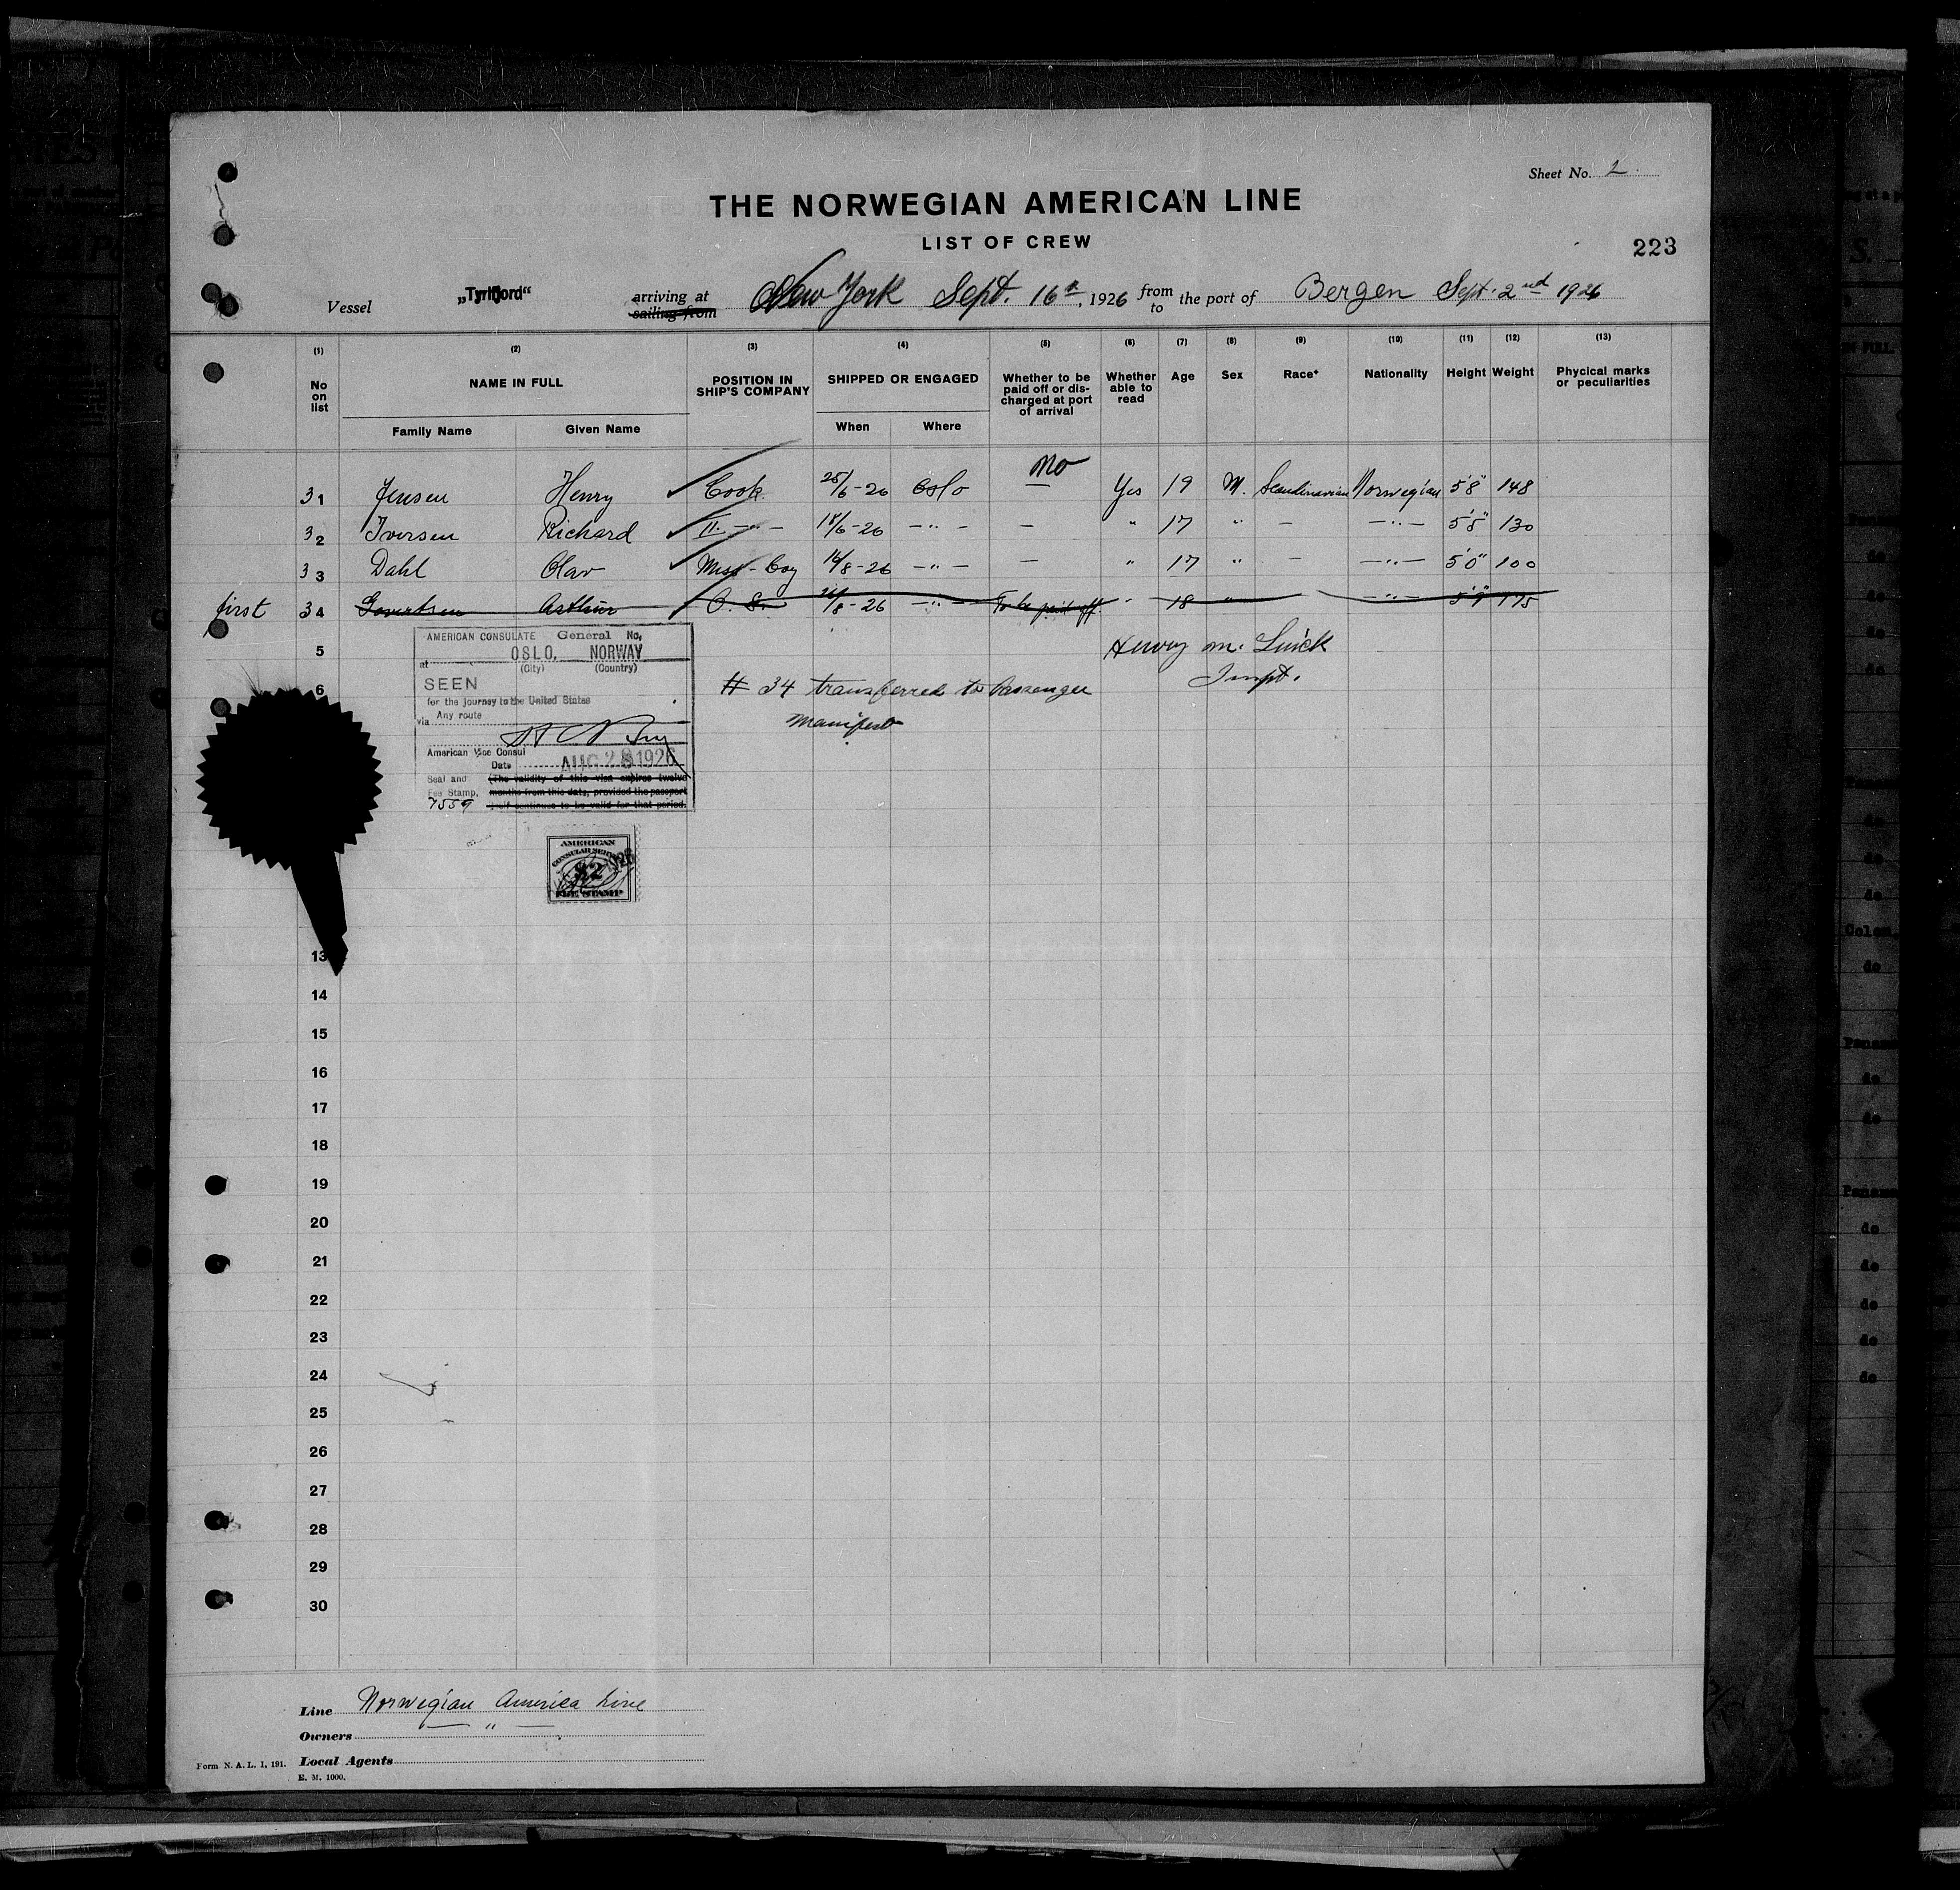 Sheet No. 2.
THE NORWEGIAN AMERICAN LINE
LIST OF CREW
223
Vessel „Tyrifjord“ arriving at New York Sept. 16th, 1926 from the port of Bergen Sept. 2nd 1926
sailing from to
(1) (2) (3) (4) (5) (6) (7) (8) (9) (10) (11) (12) (13)
No on list NAME IN FULL POSITION IN SHIP'S COMPANY SHIPPED OR ENGAGED Whether to be paid off or discharged at port of arrival Whether able to read Age Sex Race* Nationality Height Weight Phycical marks or peculiarities
Family Name Given Name When Where
No
31 Jensen Henry Cook 25/6-26 Oslo — Yes 19 M. Scandinavian Norwegian 5'8" 148
32 Iversen Richard II. —"— 18/6-26 —"— — " 17 " — —"— 5'5" 130
33 Dahl Olav Mess-boy 14/8-26 —"— — " 17 " — —"— 5'0" 100
first 34 Arthur O. S. /8-26 —"— To be paid off. " 18 " —"— 5'9" 175
5 Henry M.
6 Inspt.
AMERICAN CONSULATE General No.
at OSLO, NORWAY
(City) (Country)
SEEN
for the journey to the United States
via Any route
American Vice Consul
Date AUG 28 1926
Seal and Fee Stamp, (The validity of this visa expires twelve
months from this date, provided the passport
itself continues to be valid for that period.
7559
# 34 transferred to Passenger
Manifest
AMERICAN
CONSULAR SERVICE
$2
FEE STAMP
13
14
15
16
17
18
19
20
21
22
23
24
25
26
27
28
29
30
Line Norwegian America Line
Owners —"—
Local Agents
Form N. A. L. 1, 191.
E. M. 1000.
do
do
do
do
do
do
do
Colom
do
Panama
do
do
Panama
do
do
do
do
do